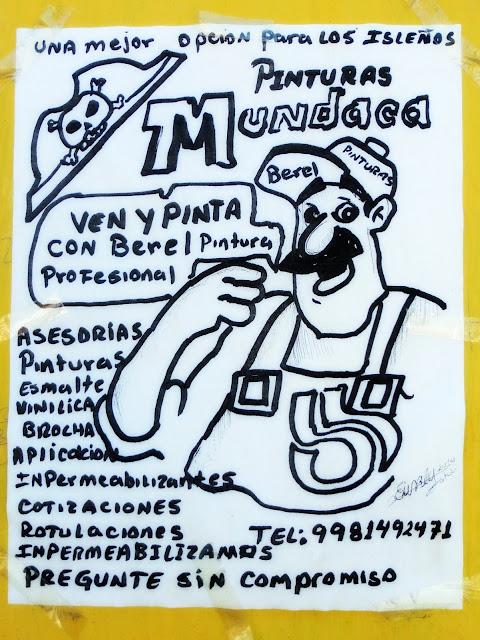 UNA mejor OPCION PARA LOS ISLEÑOS
PINTURAS
Mundaca
Berel
PINTURAS
VEN Y PINTA
CON Berel Pintura
Profesional
ASESORIAS
Pinturas
Esmalte
VINILICA
BROCHA
APlicacion
INPermeabilizantes
COTIZACIONES
ROTULACIONES
INPERMEABILIZAMOS
TEL: 9981492471
PREGUNTE SIN COMPROMISO
5